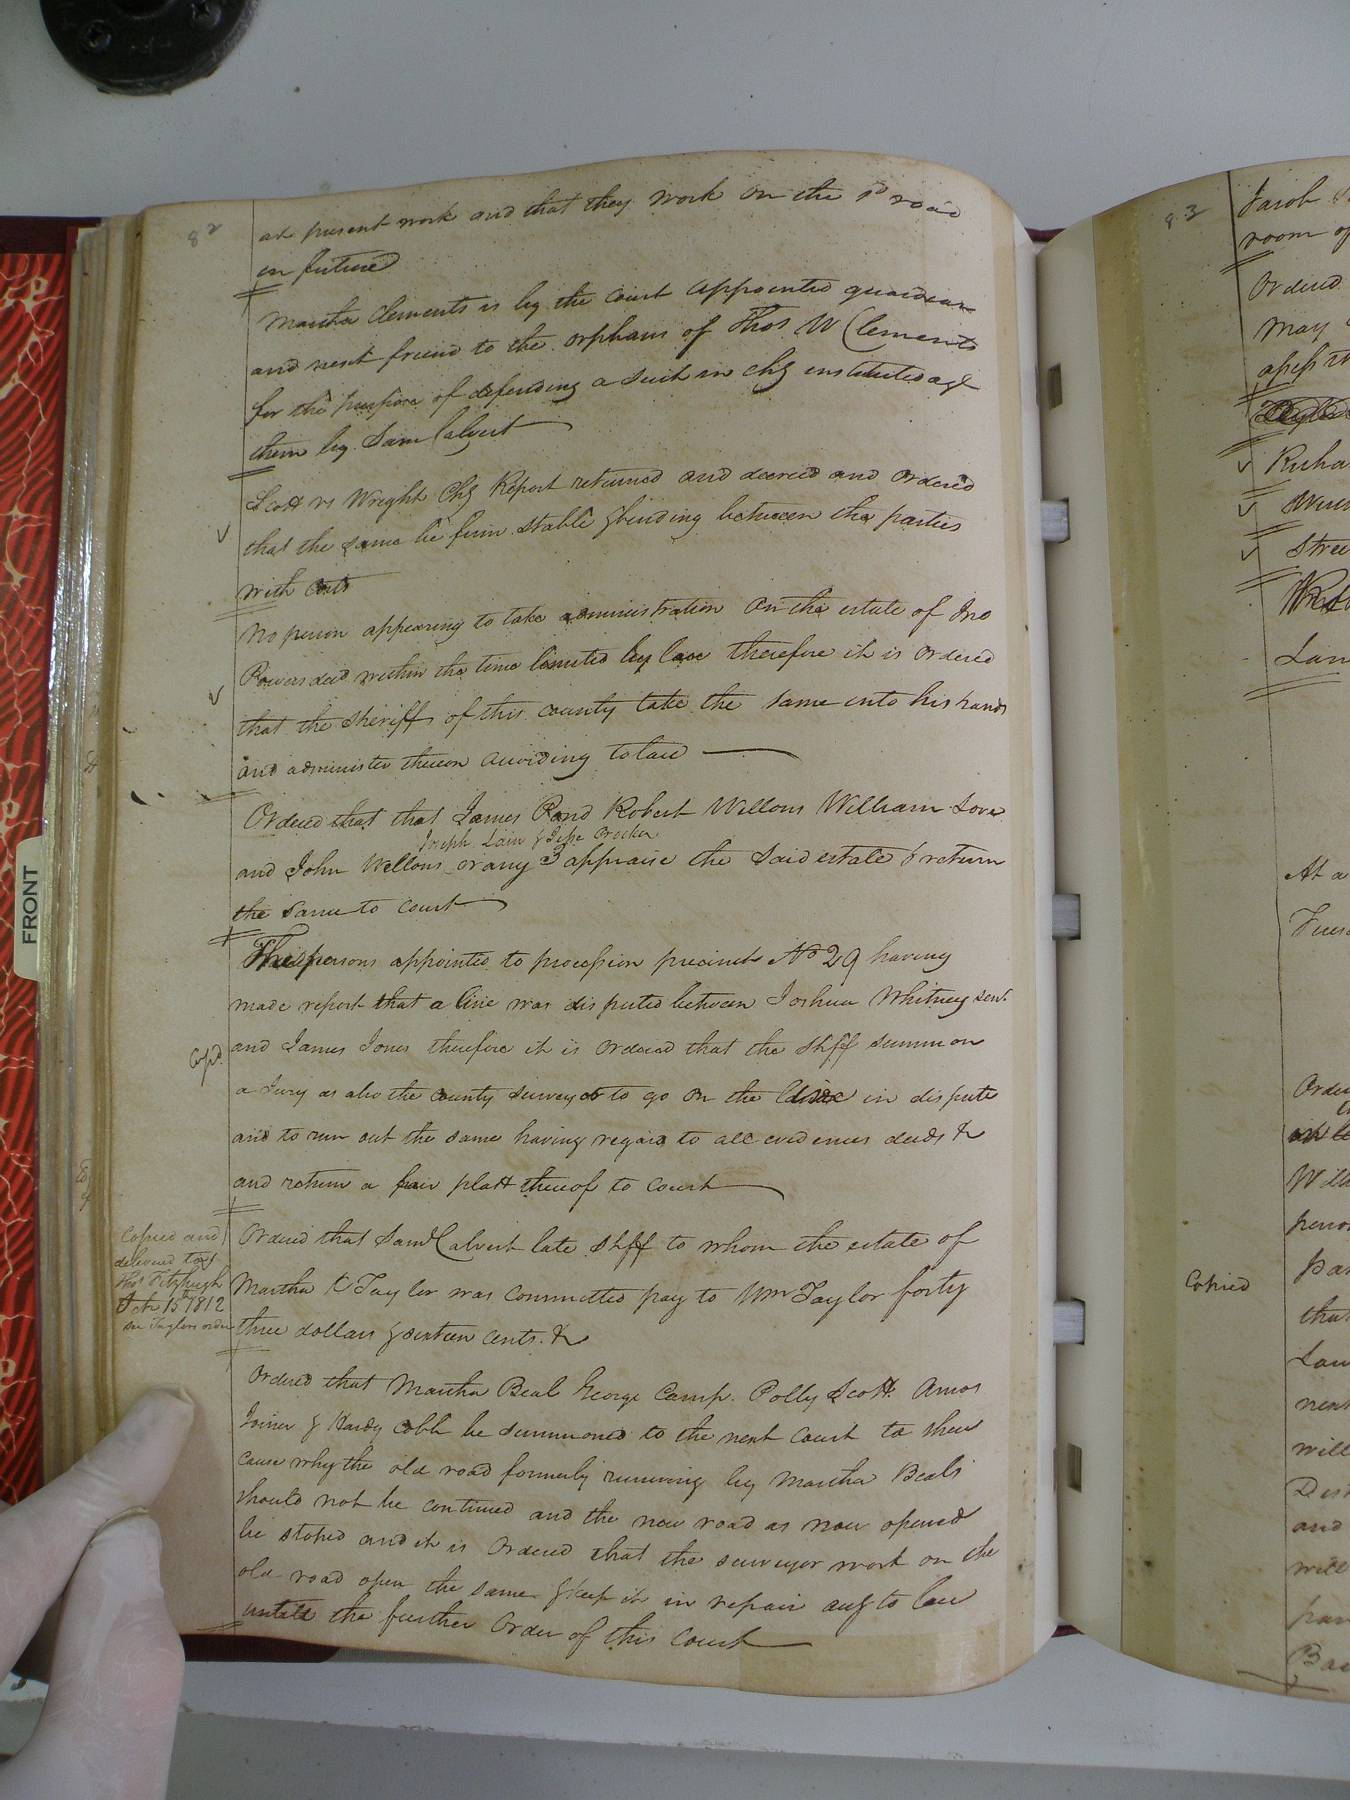 82
at present work and that they work on the sd road
in future
Martha Clements is by the court appointed guardian
and next friend to the orphans of Thos W Clements
for the purpose of defending a suit in chy instituted agt
them by Sam Calvert
Scott vs Wright Chy Report returned and decreed and ordered
that the same be firm stable & binding between the parties
with costs
No person appearing to take administration on the estate of Jno
Powers decd within the time limited by law therefore it is ordered
that the sheriff of this county take the same into his hands
and administer thereon according to law
Ordered that that James Rand Robert Wellons William Love
Joseph Lain & Jesse Crocker
and John Wellons or any 3 appraise the said estate & return
the same to court
The persons appointed to procession precinct No 29 having
made report that a line was disputed between Joshua Whitney senr
and James Jones therefore it is ordered that the shff summon
Copd.
a Jury as also the county surveyor to go on the line in dispute
and to run out the same having regard to all evidences deeds &c
and return a fair platt thereof to court
Ordered that Saml Calvert late shff to whom the estate of
Martha Taylor was committed pay to Wm Taylor forty
three dollars & sixteen cents. &c
Copied and
delivered to
Thos Fitzhugh
15th 1812
Taylors order
Ordered that Martha Beal George Camp. Polly Scott Amos
Joiner & Hardy Cobb be summoned to the next court to shew
cause why the old road formerly running by Martha Beals
should not be continued and the new road as now opened
be stoped and it is ordered that the surveyor work on the
old road open the same & keep it in repair to law
untill the further order of this court
83
Jacob
room of
Ordered
May
Richa
Stree
Lan
At a
Orde
Will
perso
Copied
tha
Law
next
will
Dist
and
will
par
Ba
FRONT